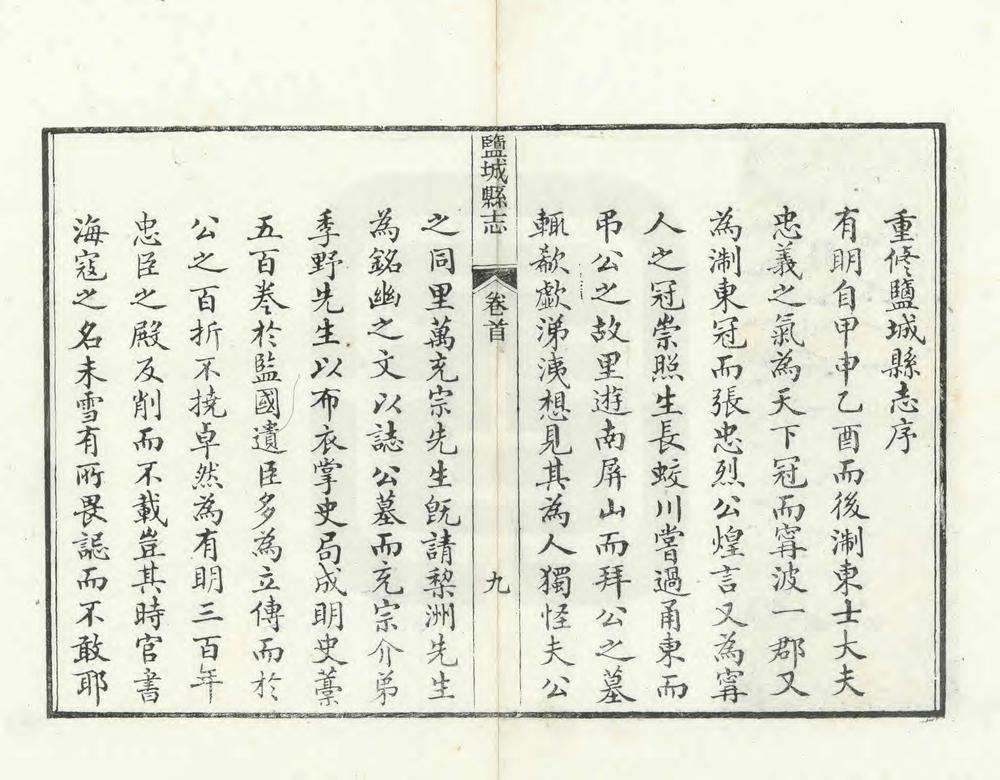 重修鹽城縣志序
有明自甲申乙酉而後淛東士大夫
忠義之氣為天下冠而甯波一郡又
為淛東冠而張忠烈公煌言又為甯
人之冠崇照生長蛟川嘗過甬東而
弔公之故里遊南屏山而拜公之墓
輒欷歔涕洟想見其為人獨怪夫公
鹽城縣志
卷首
九
之同里萬充宗先生旣請棃洲先生
為銘幽之文以誌公墓而充宗介弟
季野先生以布衣掌史局成明史藁
五百卷於監國遺臣多為立傳而於
公之百折不撓卓然為有明三百年
忠臣之殿反削而不載豈其時官書
海寇之名未雪有所畏誋而不敢耶